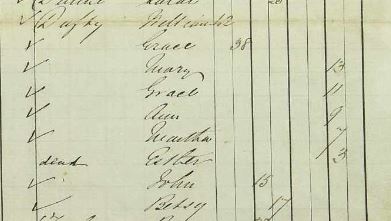 Sarah
✓ William 42
✓ Grace 38
✓ Mary 13
✓ Grace 11
✓ Ann 9
✓ Martha 7
dead Esther 3
✓ John 15
✓ Betsy 17